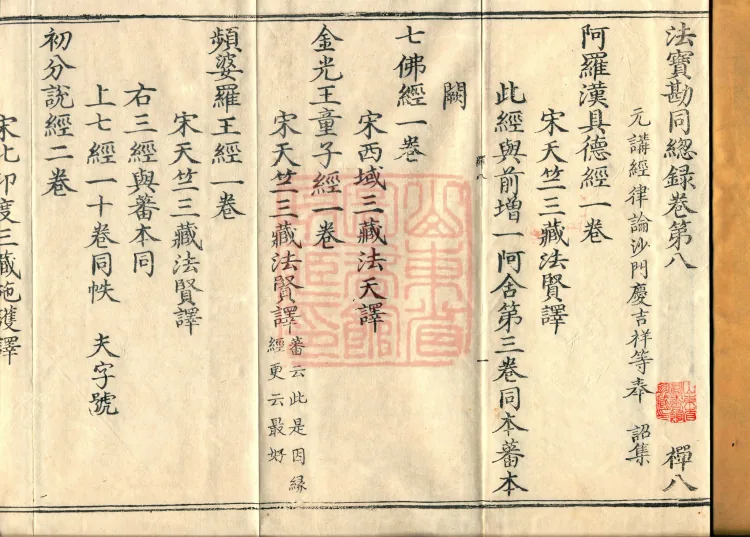 法寶勘同總錄卷第八 禪八
元講經律論沙門慶吉祥等奉 詔集
阿羅漢具德經一卷
宋天竺三藏法賢譯
此經與前增一阿含第三卷同本蕃本
闕
七佛經一卷
宋西域三藏法天譯
金光王童子經一卷
宋天竺三藏法賢譯 蕃云此是因緣
經更云最好
頻婆羅王經一卷
宋天竺三藏法賢譯
右三經與蕃本同
上七經一十卷同帙 夫字號
初分說經二卷
宋北印度三藏施護譯